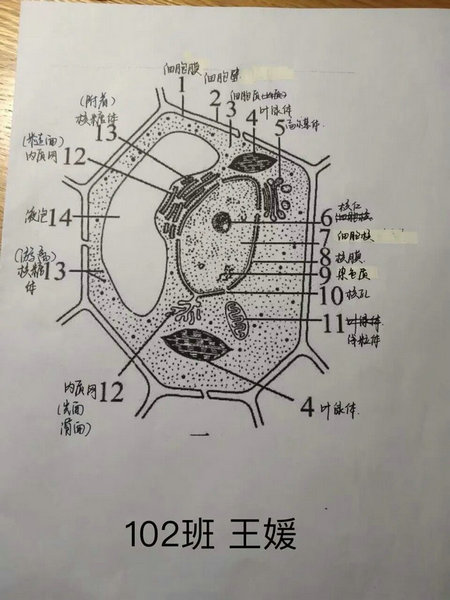 细胞膜
1
细胞壁
2
细胞质(基质)
3
叶绿体
4
高尔基体
5
(附着)
核糖体
13
(粗造面)
内质网
12
液泡
14
(游离)
核糖
体
13
核仁
6
7
细胞核
8
核膜
9
染色质
10
核孔
11
线粒体
内质网
12
(光面
滑面)
4
叶绿体
一
102班 王媛